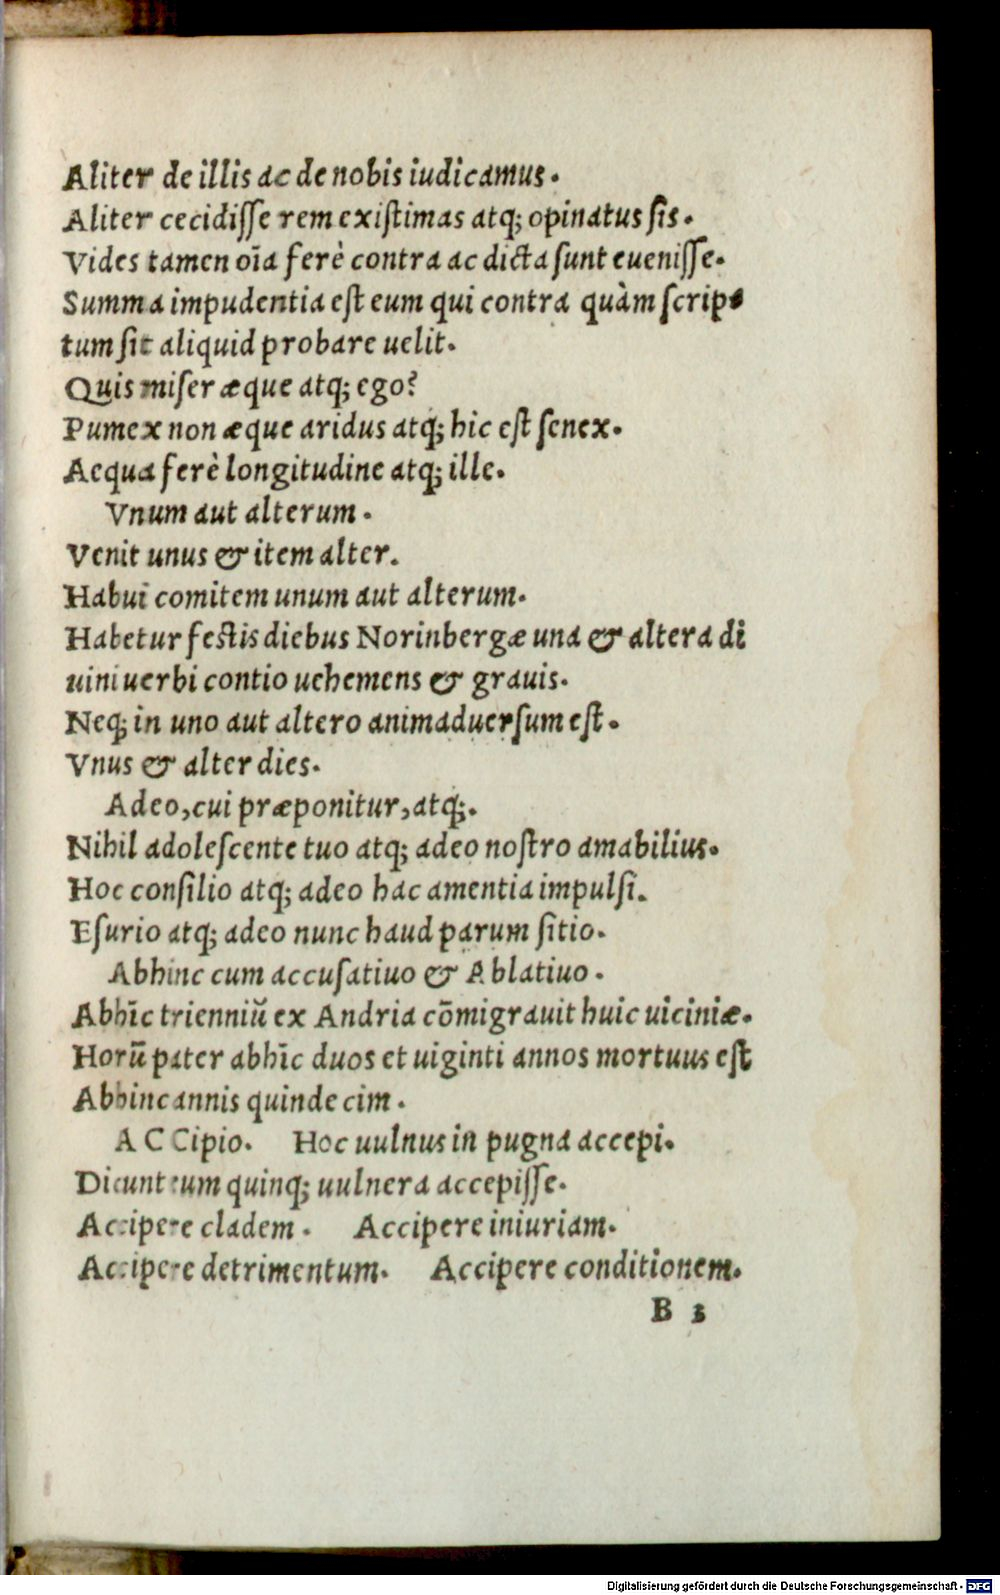 Aliter de illis ac de nobis iudicamus.
Aliter cecidiſſe rem exiſtimas atq; opinatus ſis.
Vides tamen oīa ferè contra ac dicta ſunt eueniſſe.
Summa impudentia eſt eum qui contra quàm ſcrip⸗
tum ſit aliquid probare uelit.
Quis miſer æque atq; ego?
Pumex non æque aridus atq; hic eſt ſenex.
Aequa ferè longitudine atq; ille.
Vnum aut alterum.
Venit unus & item alter.
Habui comitem unum aut alterum.
Habetur feſtis diebus Norinbergæ una & altera di
uini uerbi contio uehemens & grauis.
Neq; in uno aut altero animaduerſum eſt.
Vnus & alter dies.
Adeo, cui præponitur, atq;.
Nihil adoleſcente tuo atq; adeo noſtro amabilius.
Hoc conſilio atq; adeo hac amentia impulſi.
Eſurio atq; adeo nunc haud parum ſitio.
Abhinc cum accuſatiuo & Ablatiuo.
Abhīc trienniū ex Andria cōmigrauit huic uiciniæ.
Horū pater abhīc duos et uiginti annos mortuus eſt
Abhinc annis quindecim.
ACCipio. Hoc uulnus in pugna accepi.
Dicunt eum quinq; uulnera accepiſſe.
Accipere cladem. Accipere iniuriam.
Accipere detrimentum. Accipere conditionem.
B 3
Digitalisierung gefördert durch die Deutsche Forschungsgemeinschaft - DFG